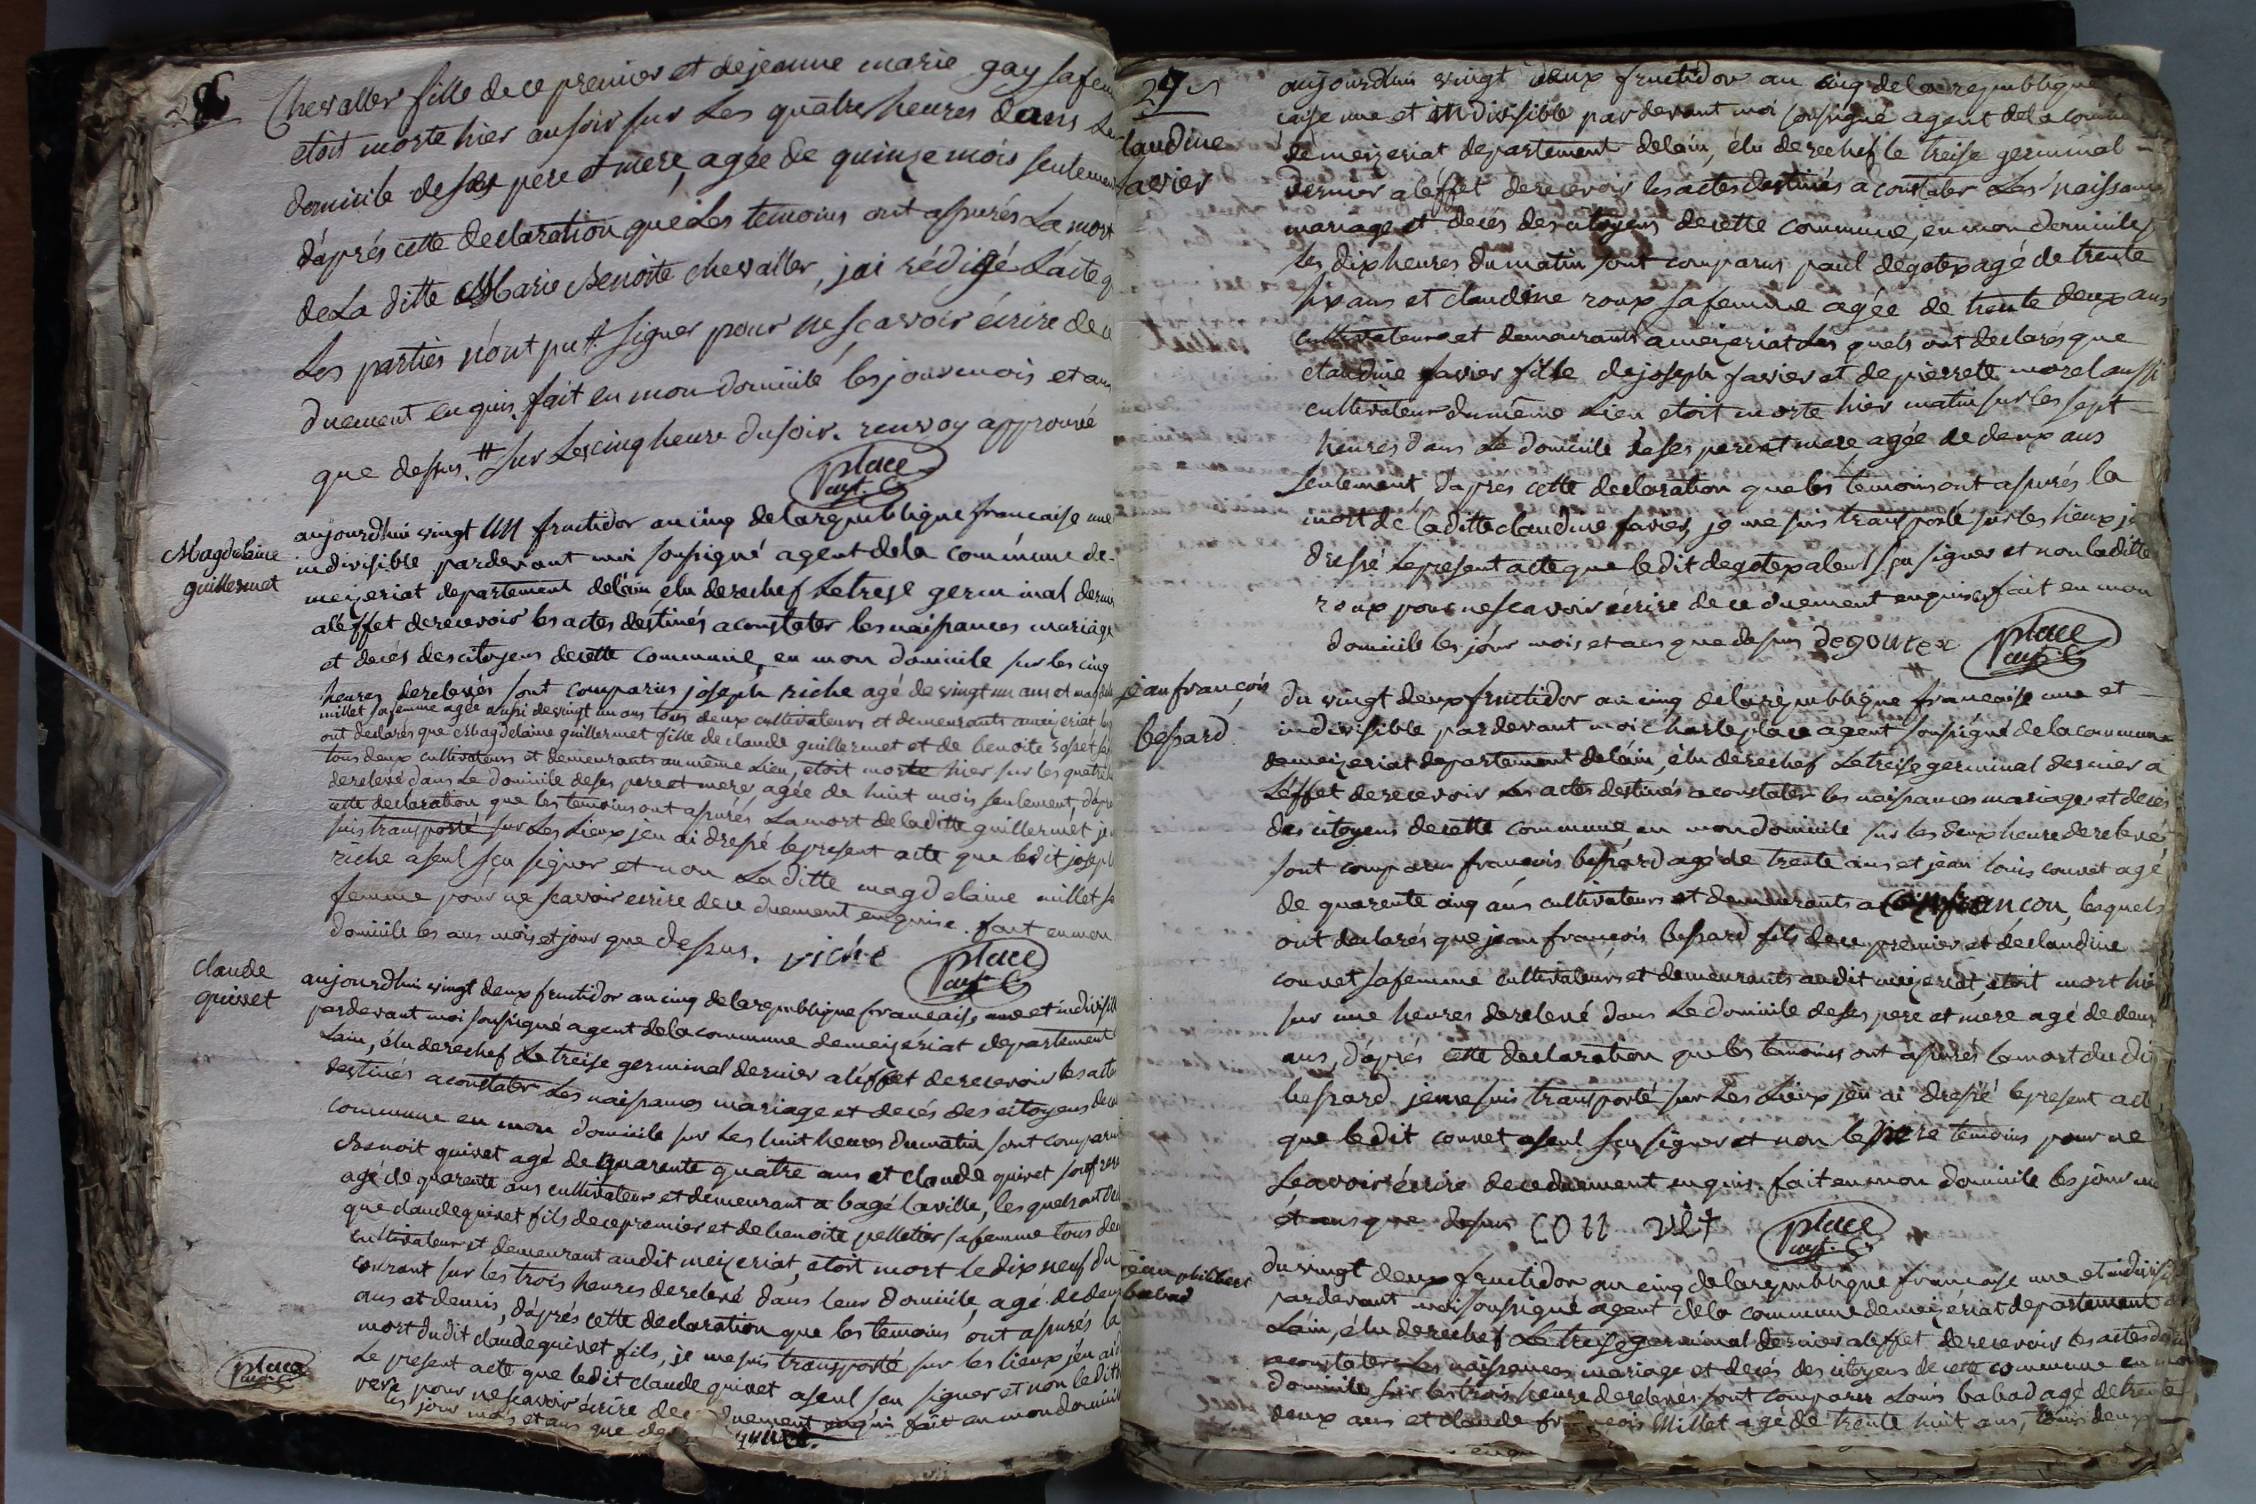 28
Chevallier fille de ce premier et de jeanne marie gay sa fem
etoit morte hier au soir sur Les quatre heures dans Le
domicile de ses pere et mere, agée de quinze mois seulement
d'aprés cette declaration que Les temoins ont assurés La mort
de La ditte Marie Benoite chevallier, jai rédigé L'acte q
Les parties n'ont pu # signer pour ne sçavoir écrire de c
duement enquis. fait en mon domicile les jour mois et an
que dessus. # sur Les cinq heure du soir. renvoy approuvé
place
agt. C.
Magdelaine
guillermet
aujourdhui vingt un fructidor an cinq de la republique francaise une
indivisible pardevant moi soussigné agent de la commune de
meizeriat departement de lain élu derechef Le treise germinal dernier
a léffet de recevoir les actes déstinés a constater les naissances mariage
et decés des citoyens de cette commune, en mon domicile sur les cinq
heures de relevés sont comparus joseph riche agé de vingt un ans et magdel
millet sa femme agée aussi de vingt un ans tous deux cultivateurs et demeurants a meizeriat les
ont declarés que Magdelaine guillermet fille de claude guillermet et de benoite
tous deux cultivateurs et demeurants au même Lieu, etoit morte hier sur les quatre
de relevé dans Le domicile de ses pere et mere, agée de huit mois seulement, d'apre
cette declaration que les temoins ont assurés La mort de la ditte guillermet je
suis transporté sur Les Lieux jen ai dressé le present acte que le dit joseph
riche a seul sçu signer et non La ditte magdelaine millet sa
femme pour ne scavoir ecrire de ce duement enquise. fait en mon
domicile les ans mois et jour que dessus. riche
place
agt. C.
claude
quivet
aujourdhui vingt deux fructidor an cinq de la republique francaise une et indivisib
pardevant moi soussigné agent de la commune de meizériat departement
Lain, élu derechef Le treise germinal dernier a léffet de recevoir les acte
destinés a constater Les naissances mariage et decés des citoyens de ce
commune en mon domicile sur Les huit heures du matin sont comparu
Benoit quivet agé de quarente quatre ans et claude quivet son frere
agé de quarente ans cultivateur et demeurant a bagé la ville, les quels ont de
que claude quivet fils de ce premier et de benoite pelletier sa femme tous deu
cultivateur et demeurant audit meizeriat, etoit mort le dix neuf du
courant sur les trois heures de relevé dans leur domicile, agé de deux
ans et demis, d'aprés cette declaration que les temoins ont assurés la
mort du dit claude quivet fils, je me suis transporté sur les lieux jen ai
Le present acte que ledit claude quivet a seul sçu signer et non ledit
pour ne scavoir écrire de ce duement enquis fait en mon domicile
les jour mois et ans que de
place
agt. C.
29
Claudine
favier
aujourdhui vingt deux fructidor an cinq de la republique
caise une et indivisible pardevant moi soussigné agent de la commu
de meizeriat departement de lain, élu derechef le treise germinal
dernier a léffet de recevoir les actes destinés a constater Les naissance
mariage et deces des citoyens de cette commune, en mon domicile
les dix heures du matin sont comparus paul degotex agé de trente
six ans et claudine roux sa femme agée de trente deux ans
cultivateurs et demeurants a meizeriat Les quels ont declarés que
claudine favier fille de joseph favier et de pierrette morel aussi
cultivateur du même Lieu etoit morte hier matin sur les sept
heures dans Le domicile de ses pere et mere agée de deux ans
seulement, d'apres cette declaration que les temoins ont assurés la
mort de la ditte claudine favier, je me suis transporté sur les lieux j
dressé Le present acte que le dit degotex a seul sçu signer et non la ditte
roux pour ne scavoir écrire de ce duement enquise, fait en mon
domicile les jour mois et ans que dessus degoutex
place
agt. C.
jean françois
bessard
du vingt deux fructidor an cinq de la republique francaise une et
indivisible pardevant moi charle place agent soussigné de la commune
de meizeriat departement de lain, élu derechef Le treise germinal dernier a
L'éffet de recevoir Les actes destinés a constater les naissances mariage et decés
des citoyens de cette commune en mon domicile sur les deux heure de relevés
sont comparu françois bessard agé de trente ans et jean louis convet agé
de quarente cinq ans cultivateurs et demeurants a Confrancon, lesquels
ont declarés que jean françois bessard fils de ce premier et de claudine
convet sa femme cultivateurs et demeurants audit meizeriat, etoit mort hier
sur une heures de relevé dans Le domicile de ses pere et mere agé de deux
ans, d'aprés cette declaration que les temoins ont assurés la mort du dit
bessard je me suis transporté sur Les Lieux jen ai dressé le present acte
que le dit convet a seul sçu signer et non le pere temoins pour ne
Scavoir écrire de ce duement enquis. fait en mon domicile les jour mo
et ans que dessus Con vet
place
agt. C.
jean philibert
babad
du vingt deux fructidor an cinq de la republique française une et indivisi
pardevant moi soussigné agent de la commune de meizériat departement d
Lain, élu derechef Le treise germinal dernier a léffet de recevoir les actes desti
a constater Les naissances mariage et decés des citoyens de cette commune en mon
domicile sur les trois heure de relever sont comparu Louis babad agé de trente
deux ans et claude françois Millet agé de trente huit ans, tous deux